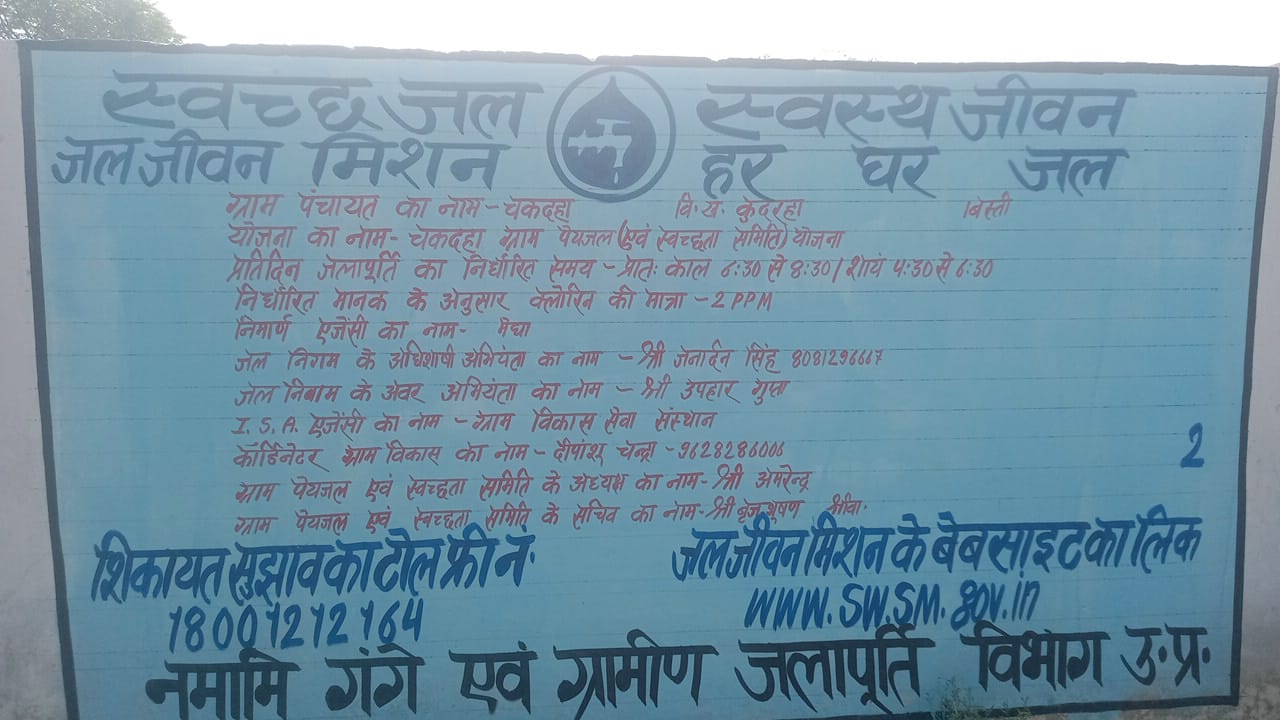 स्वच्छ जल स्वस्थ जीवन
जल जीवन मिशन हर घर जल
ग्राम पंचायत का नाम - चकदहा वि. ख. कुदरहा बस्ती
योजना का नाम - चकदहा ग्राम पेयजल (एवं स्वच्छता समिति) योजना
प्रतिदिन जलापूर्ति का निर्धारित समय - प्रातः काल 6:30 से 8:30 / शायं 4:30 से 6:30
निर्धारित मानक के अनुसार क्लोरिन की मात्रा - 2 PPM
निमार्ण एजेंसी का नाम - मेघा
जल निगम के अधिशाषी अभियंता का नाम - श्री जनार्दन सिंह 8081296667
जल निगम के अवर अभियंता का नाम - श्री उपहार गुप्ता
I. S. A. एजेंसी का नाम - ग्राम विकास सेवा संस्थान
कॉर्डिनेटर ग्राम विकास का नाम - दीपांशू चन्द्रा - 9628286006
2
ग्राम पेयजल एवं स्वच्छता समिति के अध्यक्ष का नाम - श्री अमरेन्द्र
ग्राम पेयजल एवं स्वच्छता समिति के सचिव का नाम - श्री बृजभूषण श्रीवा.
शिकायत सुझाव का टोल फ्री नं.
18001212164
जल जीवन मिशन के बेबसाइट का लिंक
WWW.SWSM.gov.in
नमामि गंगे एवं ग्रामीण जलापूर्ति विभाग उ. प्र.